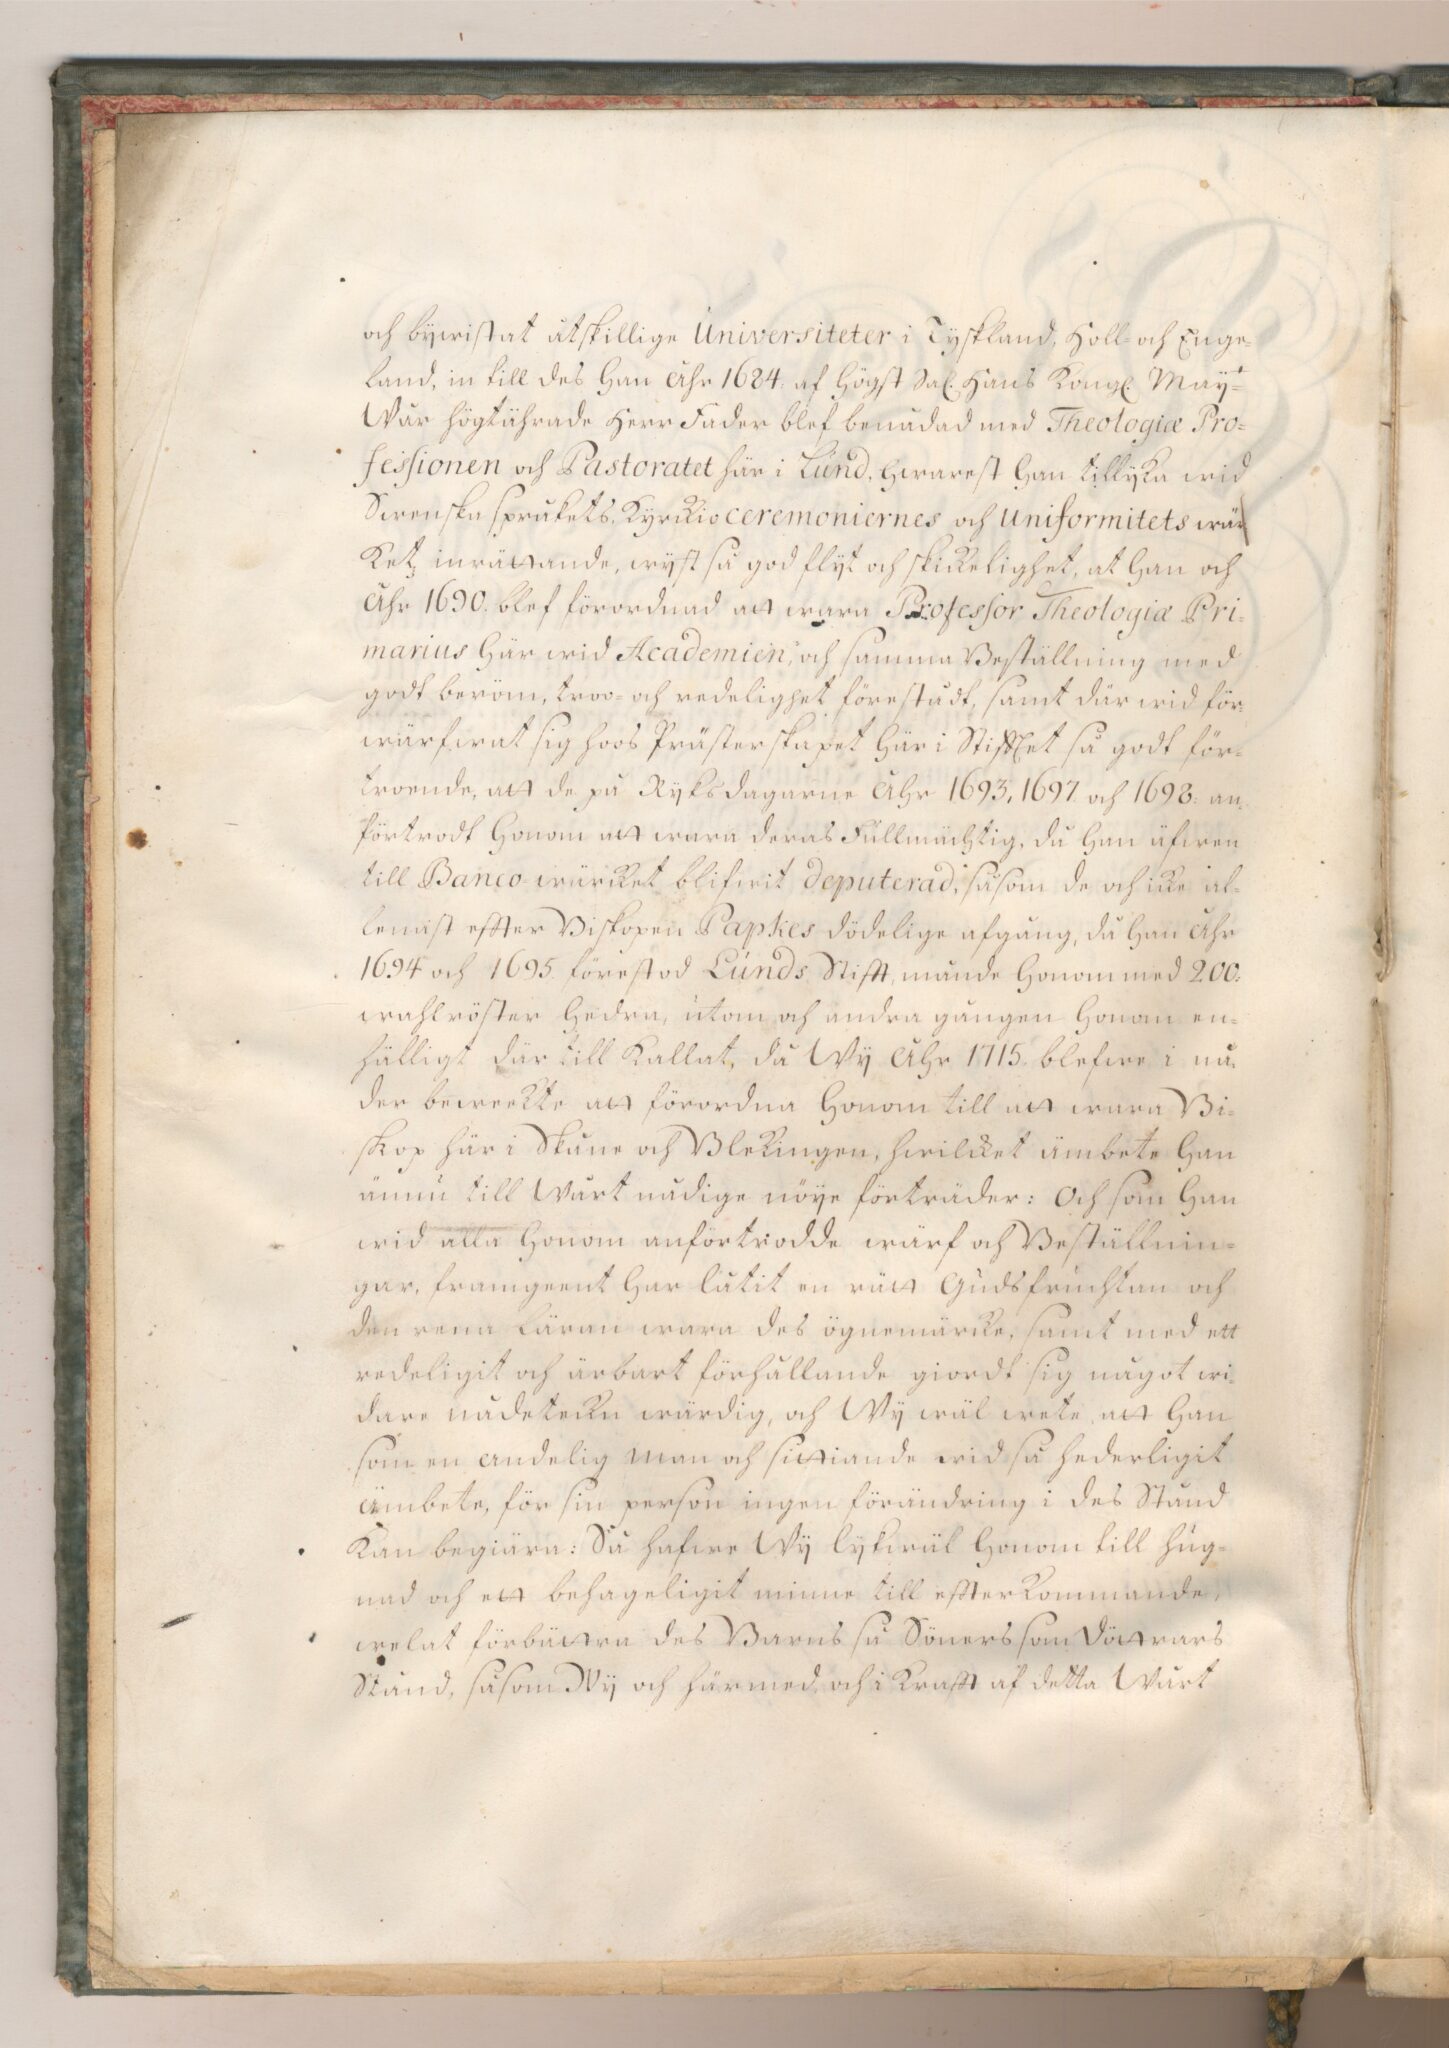 och bywistat åtskillige Universiteter i Tyskland, Holl- och Enge-
land, in till des Han Åhr 1684. af Högst Sal. Hans Kongl. Maÿt
Wår Högtährade Herr Fader blef benådad med Theologiæ Pro-
fessionen och Pastoratet här i Lund, Hwarest Han tillyka wid
Swenska språkets, Kyrkio ceremoniernes och Uniformitets wär
Ketz inrättande, wyst så god flyt och skickelighet, at Han och
Åhr 1690. blef förordnad att wara Professor Theologiæ Pri-
marius Här wid Academien, och samma Beställning med
godt beröm, troo- och redelighet förestådt, samt där wid för-
wärfwat sig hoos Prästerskapet Här i Stifftet så godt för-
troende, att de på Ryksdagarne Åhr 1693, 1697 och 1698. an-
förtrodt Honom att wara deras Fullmächtig, då Han äfwen
till Banco-wärcket blifwit deputerad, såsom de och icke al-
lenast effter Biskopen Papkes dödelige afgång, då Han Åhr
1694 och 1695 förestod Lunds Stifft, månde Honom med 200.
wahlröster Hedra, utom och andra gången Honom en-
hälligt där till kallat, då Wÿ Åhr 1715. blefwe i nå-
der beweckte att förordna Honom till att wara Bi-
skop här i Skåne och Blekingen, hwilcket ämbete Han
ännu till Wårt nådige nöye förträder: Och som Han
wid alla Honom anförtrodde wärf och Beställnin-
gar, framgeent Har låtit en rätt Gudsfruchtan och
den rena Läran wara des ögnemärcke, samt med ett
redeligit och ärbart förhållande giordt sig något wi-
dare nådetecken wärdig, och Wÿ wäl wete att Han
som en Andelig Man och sittiande wid så hederligit
Ämbete, för sin person ingen förändring i des Stånd
Kan begiära: Så hafwe Wÿ lykwäl Honom till hug-
nad och ett behageligit minne till effterkommande,
welat förbättra des Barns så Söners som Döttrars
Stånd, såsom Wÿ och härmed och i Krafft af detta Wårt